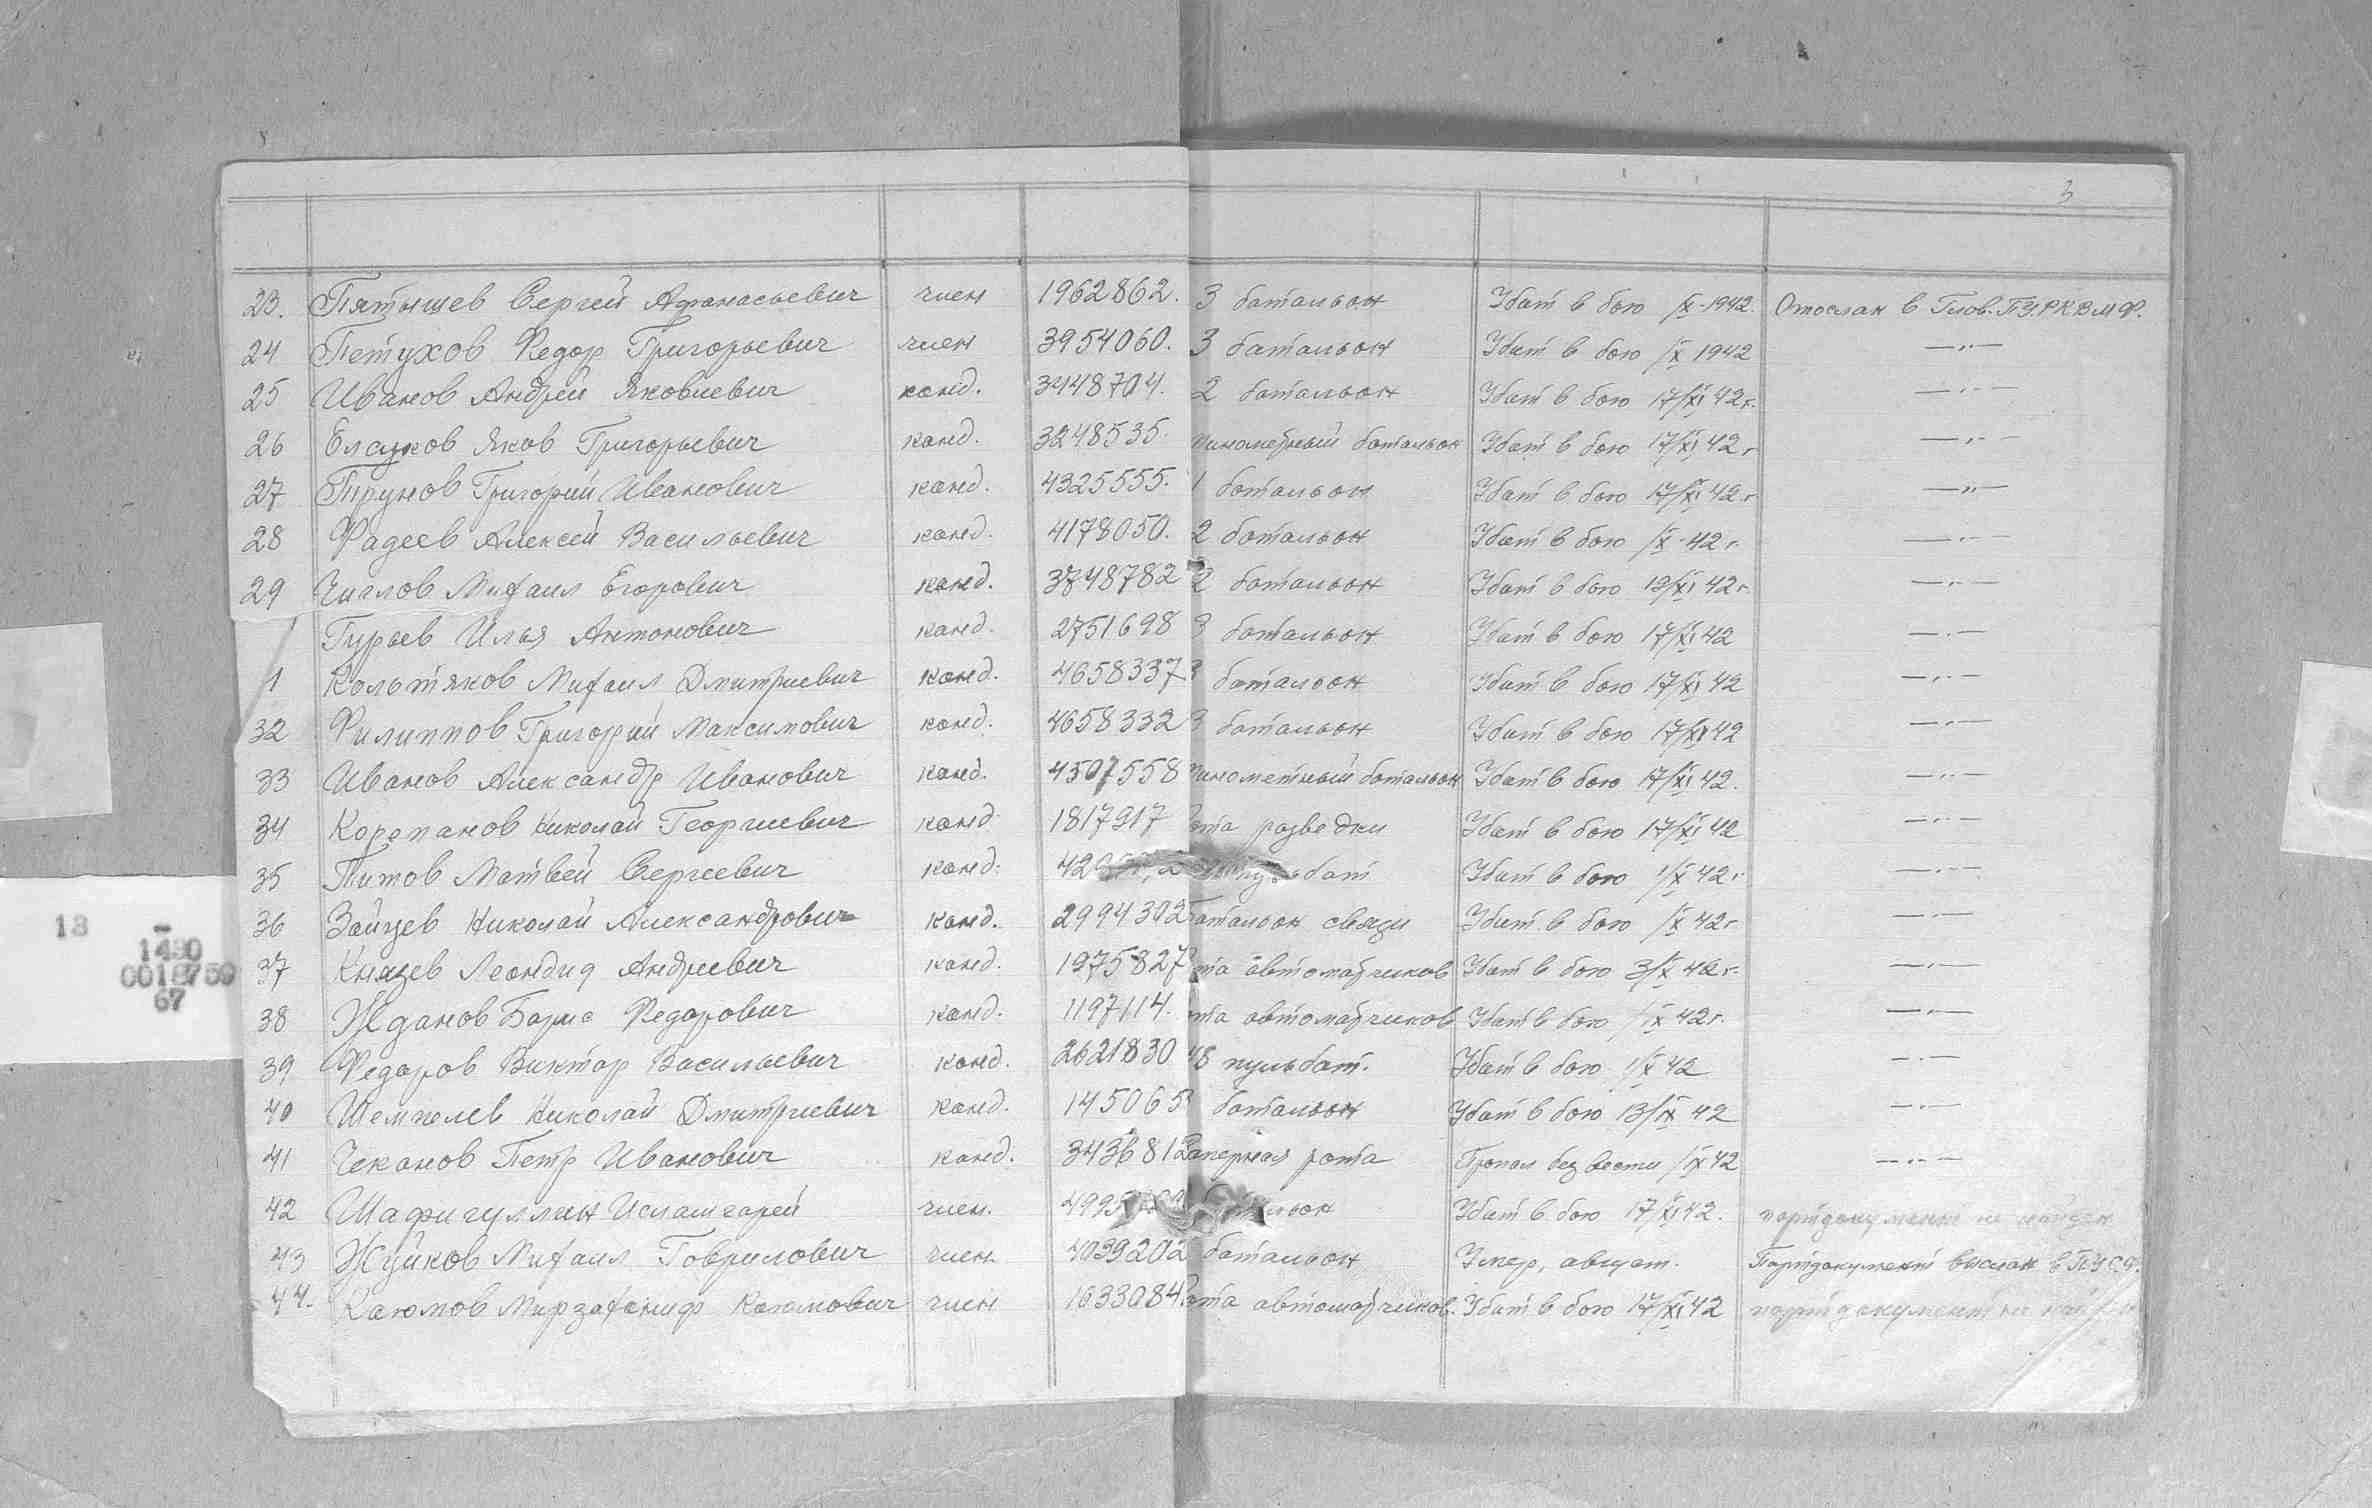 3
23. Пятышев Сергей Афанасьевич член 1962862. 3 батальон Убит в бою /X-1942. Отослан в Глов.ПУ.РКВМФ.
24 Петухов Федор Григорьевич член 3954060. 3 батальон Убит в бою /X 1942 —„—
25 Иванов Андрей Яковлевич канд. 3448704. 2 батальон Убит в бою 17/XI 42г. —„—
26 Елсуков Яков Григорьевич канд. 3248535. пулеметный батальон Убит в бою 17/XI 42г —„—
27 Трунов Григорий Иванович канд. 4325555. 1 батальон Убит в бою 17/XI 42г —„—
28 Фадеев Алексей Васильевич канд. 4178050. 2 батальон Убит в бою /X 42г. —„—
29 Чиглов Михаил Егорович канд. 3748782 2 батальон Убит в бою 19/XI 42г. —„—
Гурьев Илья Антонович канд. 2751698 3 батальон Убит в бою 17/XI 42 —„—
1 Кольтяков Михаил Дмитриевич канд. 4658337 3 батальон Убит в бою 17/XI 42 —„—
32 Филиппов Григорий Максимович канд. 4658332 3 батальон Убит в бою 17/XI 42 —„—
33 Иванов Александр Иванович канд. 4507558 пулеметный батальон Убит в бою 17/XI 42. —„—
34 Корепанов Николай Георгиевич канд. 1817917 рота разведки Убит в бою 17/XI 42 —„—
35 Титов Матвей Сергеевич канд. бат Убит в бою 1/X 42г —„—
36 Зайцев Николай Александрович канд. 2994302 батальон связи Убит в бою /X 42г —„—
37 Князев Леондид Андреевич канд. 1975827 рота автоматчиков Убит в бою 3/X 42г. —„—
38 Жданов Борис Федорович канд. 1197114. рота автоматчиков Убит в бою /IX 42г. —„—
39 Федоров Виктор Васильевич канд. 2621830 48 пульбат. Убит в бою 1/X 42 —„—
40 Шемпелев Николай Дмитриевич канд. 145065 батальон Убит в бою 13/IX 42 —„—
41 Чеканов Петр Иванович канд. 343681 саперная рота Пропал без вести /IX 42 —„—
42 Шафигуллин Исламгарей член. батальон Убит в бою 17/XI 42. партдокумент не найден
43 Жуйков Михаил Гаврилович член 4039202 батальон Умер, август. Партдокумент выслан в ПУ С.Ф.
44. Каюмов Мирзаханиф Каюмович член 1633084. рота автоматчиков. Убит в бою 17/XI 42 партдокумент не найден
13
1490
0018759
67